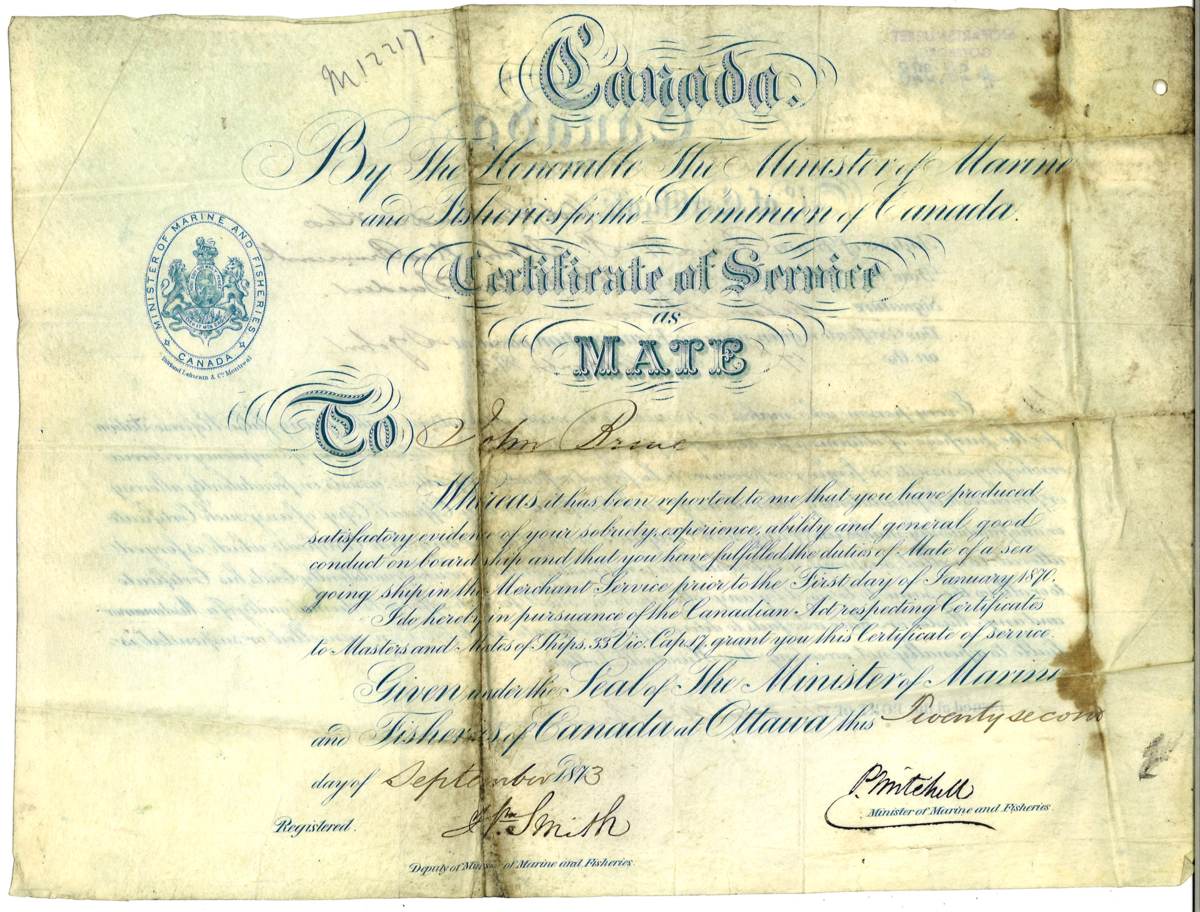 M12217.
Canada.
By The Honorable The Minister of Marine
and Fisheries for the Dominion of Canada.
MINISTER OF MARINE AND FISHERIES
CANADA
Certificate of Service
as
MATE
To John
Whereas it has been reported to me that you have produced
satisfactory evidence of your sobriety, experience, ability and general good
conduct on board ship and that you have fulfilled the duties of Mate of a sea
going ship in the Merchant Service prior to the First day of January 1870.
I do hereby in pursuance of the Canadian Act respecting Certificates
to Masters and Mates of Ships. 33 Vic. Cap. 17. grant you this Certificate of service.
Given under the Seal of The Minister of Marine
and Fisheries of Canada at Ottawa this Twenty second
day of September 1873
P. Mitchell
Minister of Marine and Fisheries.
Registered.
Wm. Smith
Deputy of Minister of Marine and Fisheries.